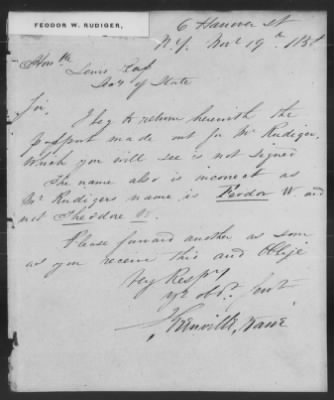 FEODOR W. RUDIGER,
6 Hanover St
N.Y. Nov 19th
Honble
Lewis Cass
Secy of State
Sir,
I beg to return herewith the
passport made out for Mr Rudiger,
which you will see is not signed
The name also is incorrect as
Mr Rudigers name is Feodor W and
not Theodore W.
Please forward another as soon
as you receive this and oblige
Very Respy
yr obdt. Servt
Grenville Kane